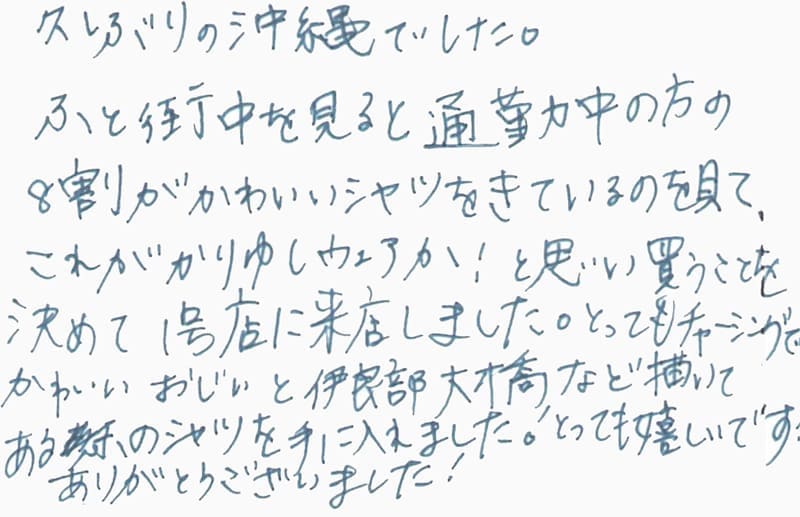 久しぶりの沖縄でした。
ふと街中を見ると通勤中の方の
8割がかわいいシャツをきているのを見て、
これがかりゆしウェアか!と思い買うことを
決めて1号店に来店しました。とってもチャーミングで
かわいいおじぃと伊良部大橋など描いて
あるのシャツを手に入れました!とっても嬉しいです!
ありがとうございました!